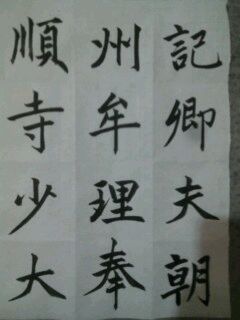 記卿夫朝
州牟理奉
順寺少大